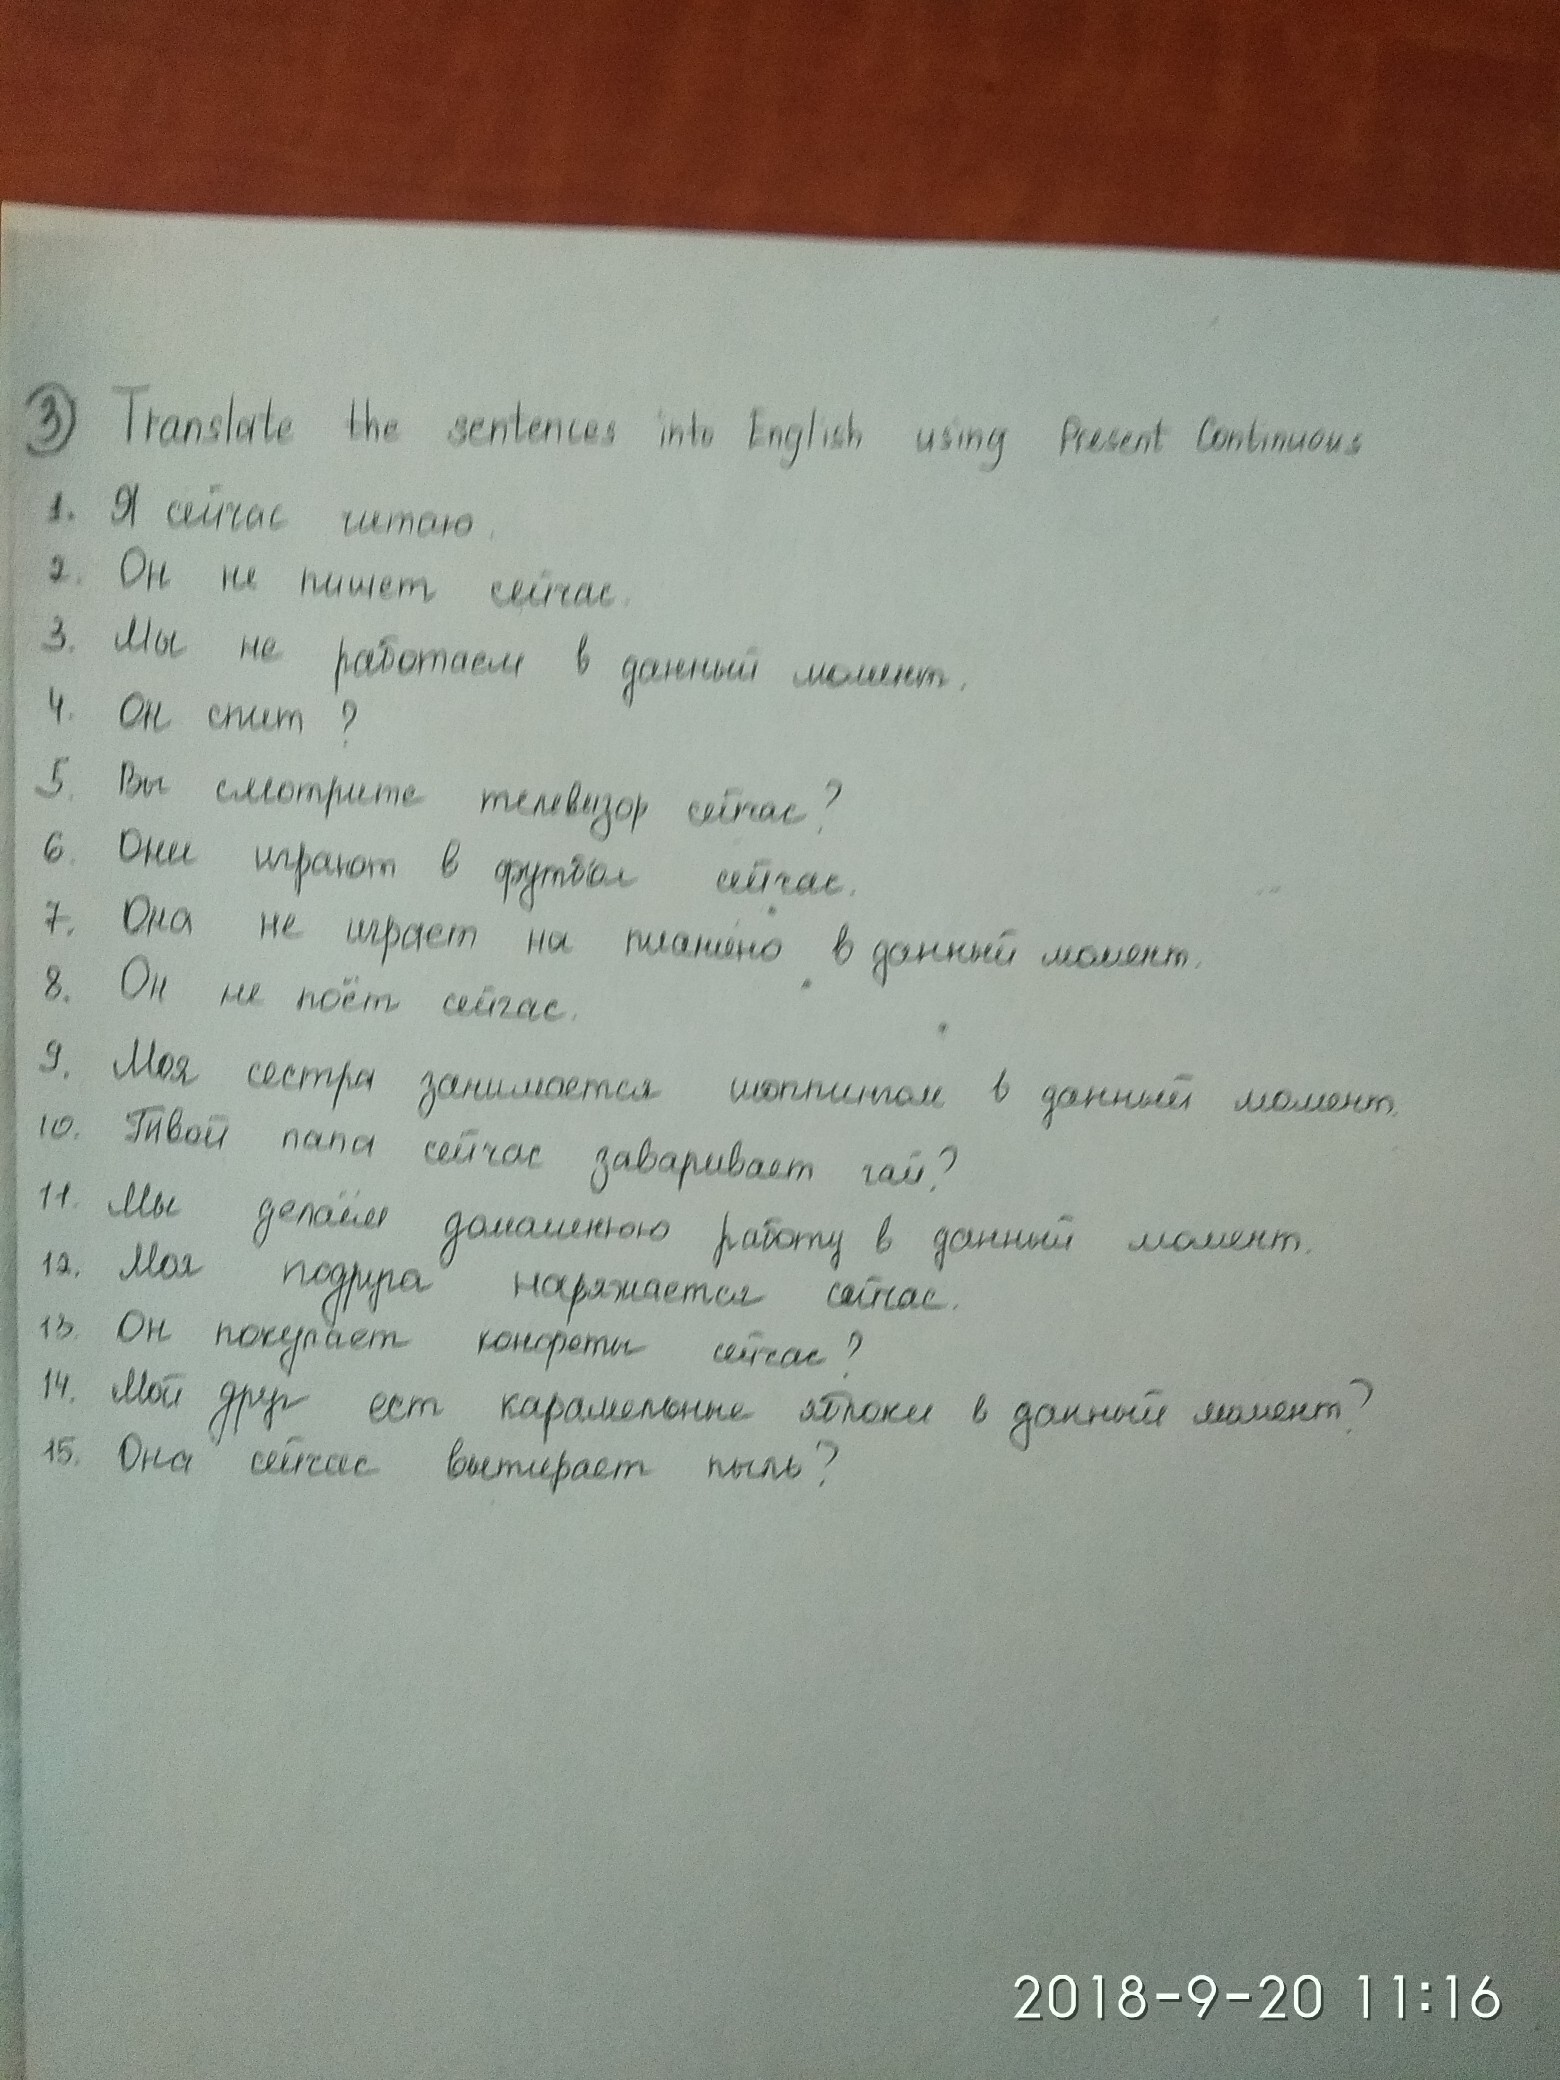 3 Translate the sentences into English using Present Continuous
1. Я сейчас читаю.
2. Он не пишет сейчас.
3. Мы не работаем в данный момент.
4. Он спит?
5. Вы смотрите телевизор сейчас?
6. Они играют в футбол сейчас.
7. Она не играет на пианино в данный момент.
8. Он не поёт сейчас.
9. Моя сестра занимается шоппингом в данный момент.
10. Твой папа сейчас заваривает чай?
11. Мы делаем домашнюю работу в данный момент.
12. Моя подруга наряжается сейчас.
13. Он покупает конфеты сейчас?
14. Мой друг ест карамельные яблоки в данный момент?
15. Она сейчас вытирает пыль?
2018-9-20 11:16